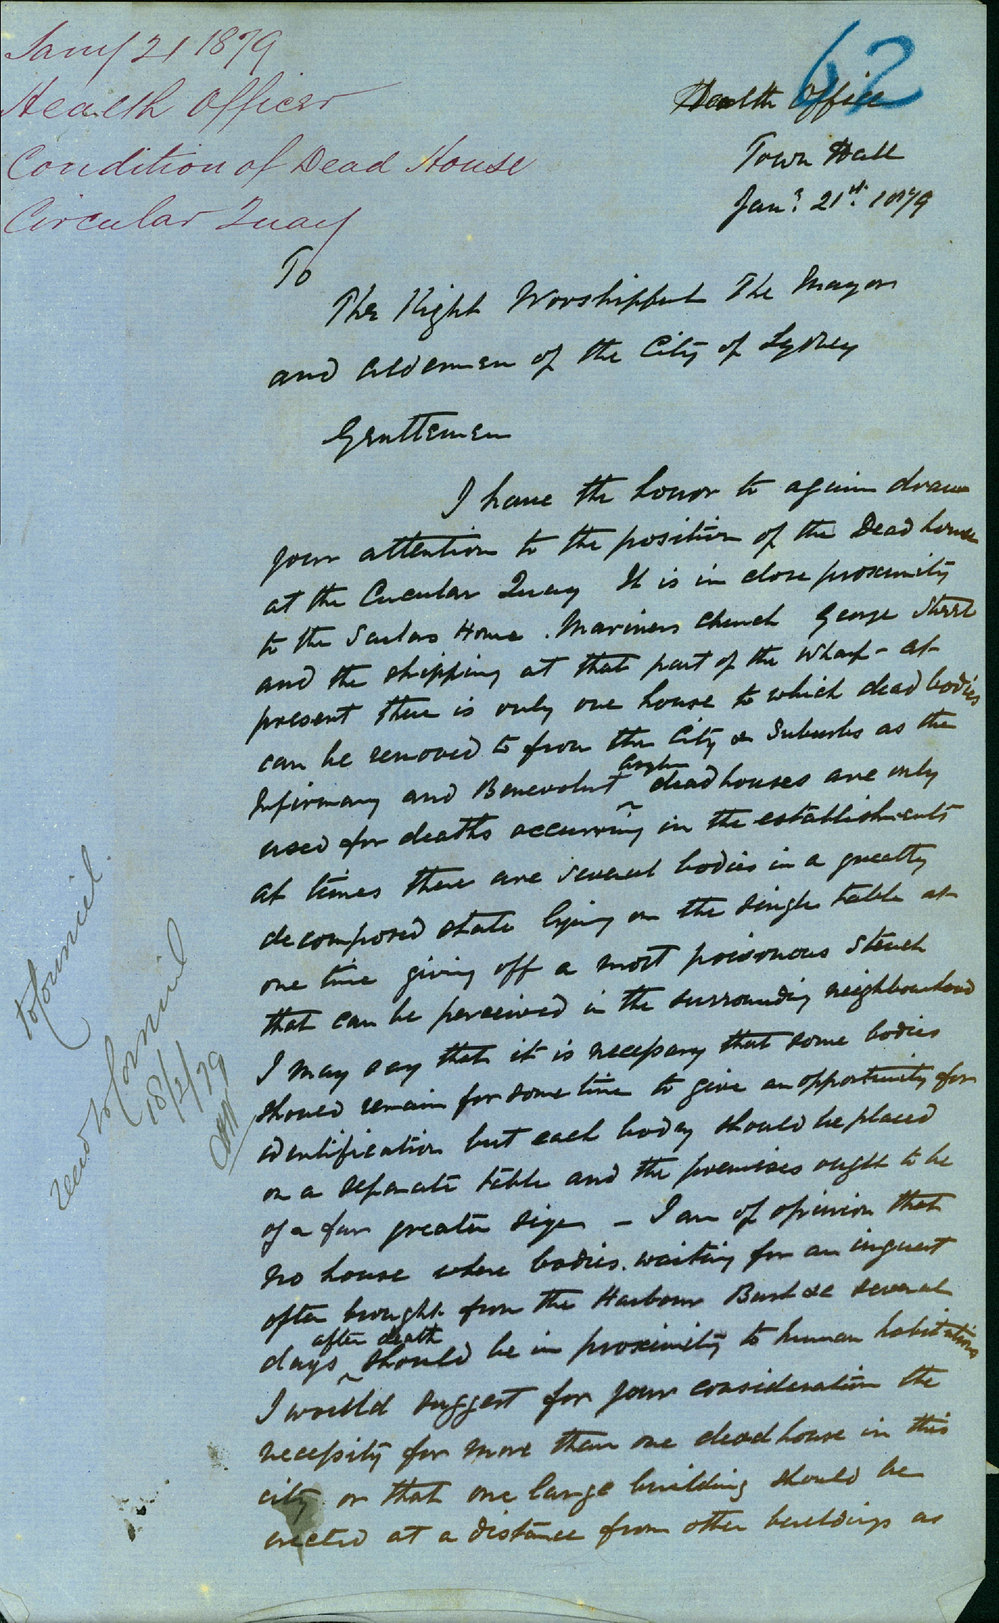 Jany 21 1879
Health Officer
Condition of Dead House
Circular Quay
62
Health Office
Town Hall
Jany 21st 1879
To
The Right Worshipful The Mayor
and Aldermen of the City of Sydney
Gentlemen
I have the honor to again draw
your attention to the position of the Dead house
at the Circular Quay It is in close proximity
to the Sailors Home . Mariners Church George Street
and the shipping at that part of the wharf - at
present there is only one house to which dead bodies
can be removed to from the City & Suburbs as the
Infirmary and Benevolent Asylum deadhouses are only
used for deaths occurring in the establishments
at times there are several bodies in a greatly
decomposed state lying on the single table at
one time giving off a most poisonous stench
that can be perceived in the surrounding neighbourhood
I may say that it is necessary that some bodies
should remain for some time to give an opportunity for
identification but each body should be placed
on a separate table and the premises ought to be
of a far greater size - I am of opinion that
no house where bodies waiting for an inquest
often brought from the Harbour Bush &c several
days after death should be in proximity to human habitations
I would suggest for your consideration the
necessity for more than one deadhouse in this
city or that one large building should be
erected at a distance from other buildings as
to Council
read to Council
18/2/79